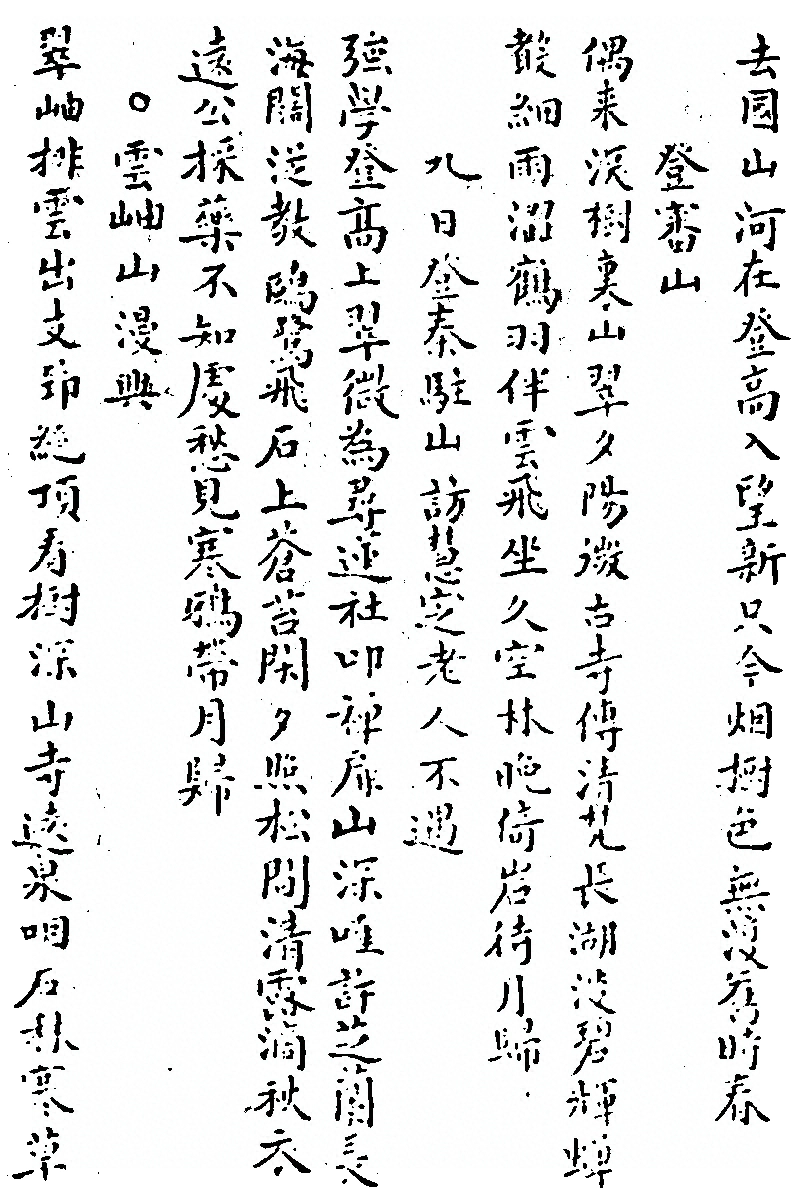 去國山河在登高入望新只今烟樹色無復舊時春
登審山
偶来深樹裏山翠夕陽微古寺傳清梵長湖淡碧輝蟬
散細雨沼鶴羽伴雲飛坐久空林晚倚岩待月歸
九日登秦駐山訪慧定老人不遇
強學登高上翠微為尋蓮社叩禅扉山深唯許芝蘭長
海闊從教鷗鷺飛石上蒼苔閑夕照松間清露滴秋衣
遠公採藥不知處愁見寒鴉帶月歸
○雲岫山漫興
翠岫排雲出支筇絕頂看樹深山寺遠泉咽石林寒草